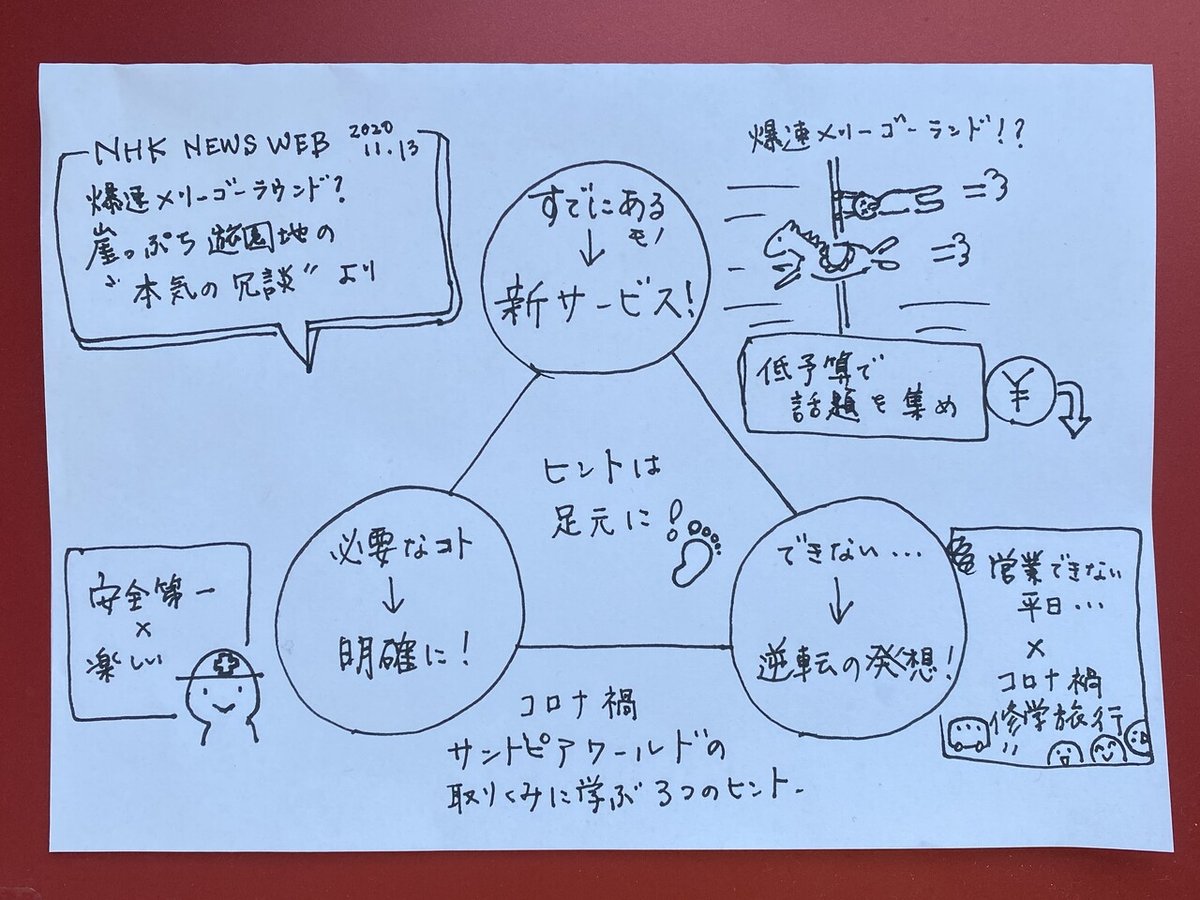 NHK NEWS WEB 2020 11.13
爆速メリーゴーラウンド?
崖っぷち遊園地の
"本気の冗談"より
すでにある
モノ
↓
新サービス!
爆速メリーゴーランド!?
低予算で
話題を集め
¥
ヒントは
足元に!
必要なコト
↓
明確に!
安全第一
×
楽しい
できない…
↓
逆転の発想!
営業できない
平日…
×
コロナ禍
修学旅行
コロナ禍
サントピアワールドの
取りくみに学ぶ3つのヒント.